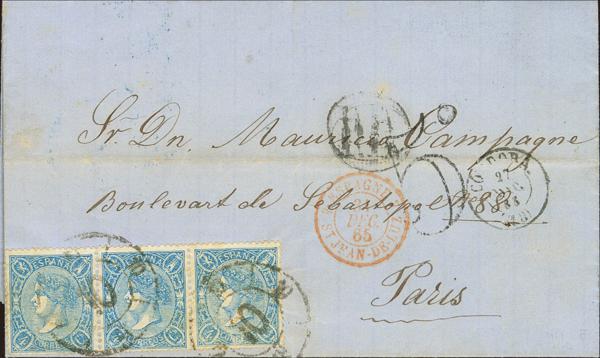 Sr. Dn. Mauricio Campagne
Boulevart de Sebastopol No. 88
Paris
ESPAGNE
DEC.
65
ST JEAN-DE-LUZ
CORDOBA
27
ESPAÑA
CORREOS
ESPAÑA
CORREOS
ESPAÑA
CORREOS
10
10